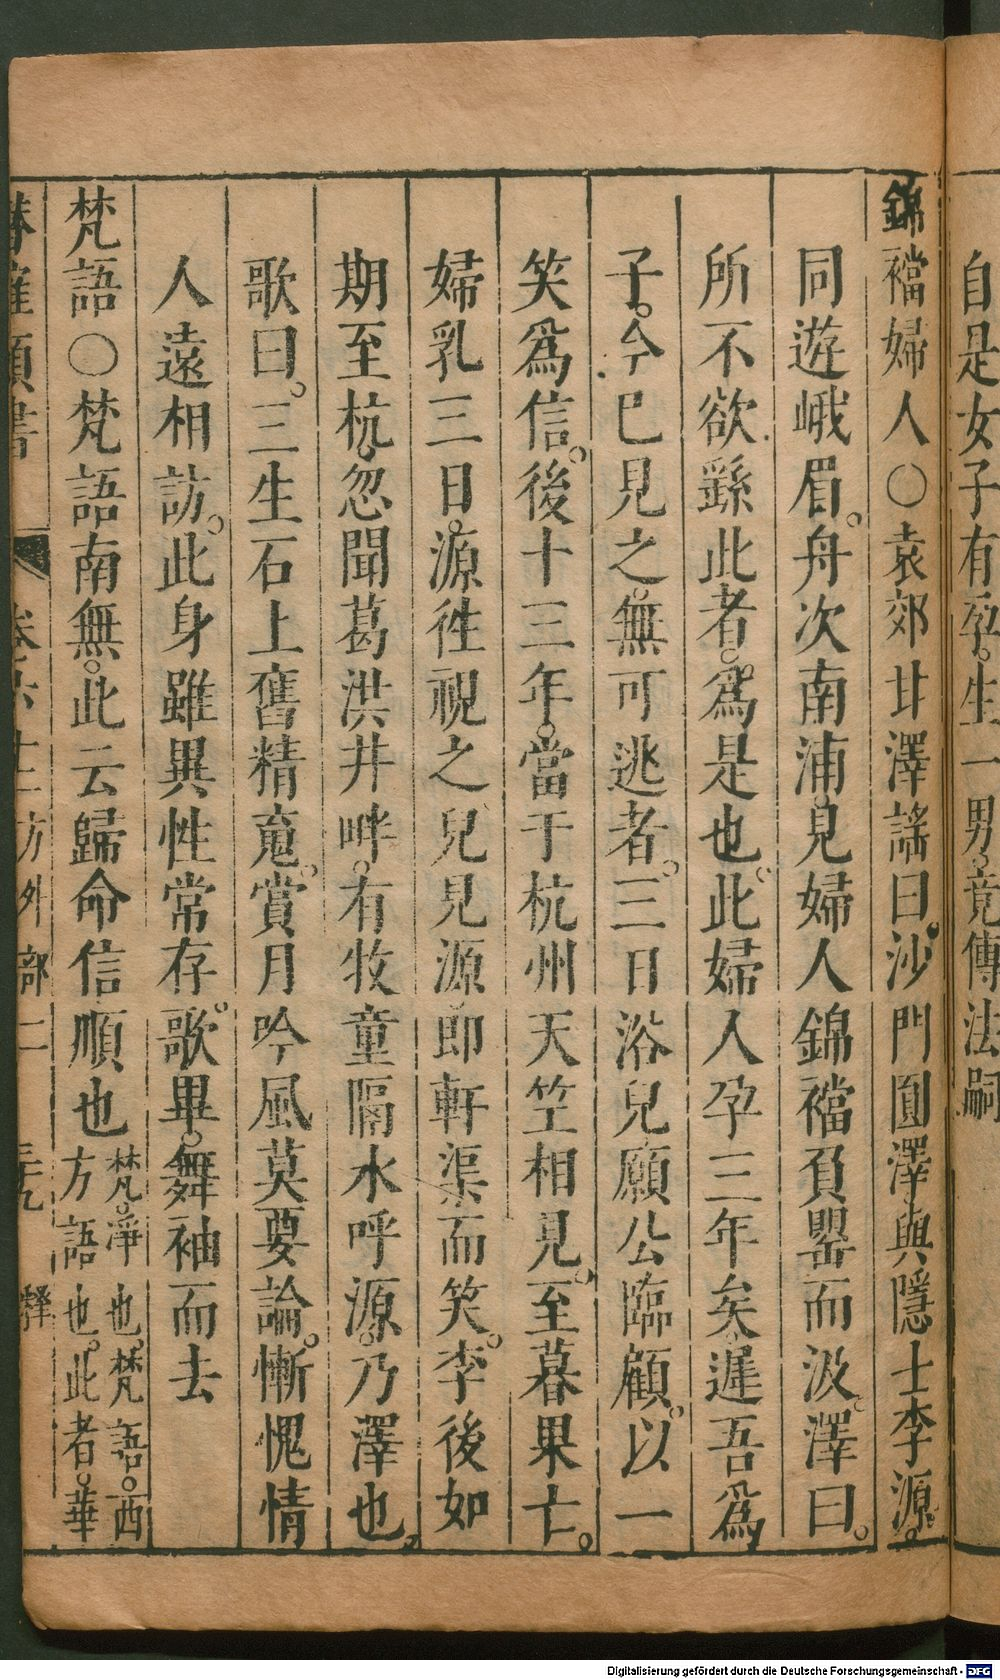 自是女子有孕。生一男。竟傳法嗣
錦襠婦人〇袁郊甘澤謠曰。沙門圓澤。與隱士李源。
同遊峨眉。舟次南浦。見婦人錦襠負罌而汲。澤曰。
所不欲繇此者。為是也。此婦人孕三年矣。遲吾為
子。今已見之。無可逃者。三日浴兒。願公臨顧。以一
笑爲信。後十三年。當于杭州天竺相見。至暮果亡。
婦乳三日。源徃視之。兒見源。即軒渠而笑。李後如
期至杭。忽聞葛洪井畔。有牧童隔水呼源。乃澤也。
歌曰。三生石上舊精䰟。賞月吟風莫要論。慚愧情
人遠相訪。此身雖異性常存。歌畢。舞袖而去
梵語〇梵語南無。此云歸命信順也梵。淨也。梵語。西
方語也。此者。華
類書 方外部二 釋
Digitalisierung gefördert durch die Deutsche Forschungsgemeinschaft - DFG